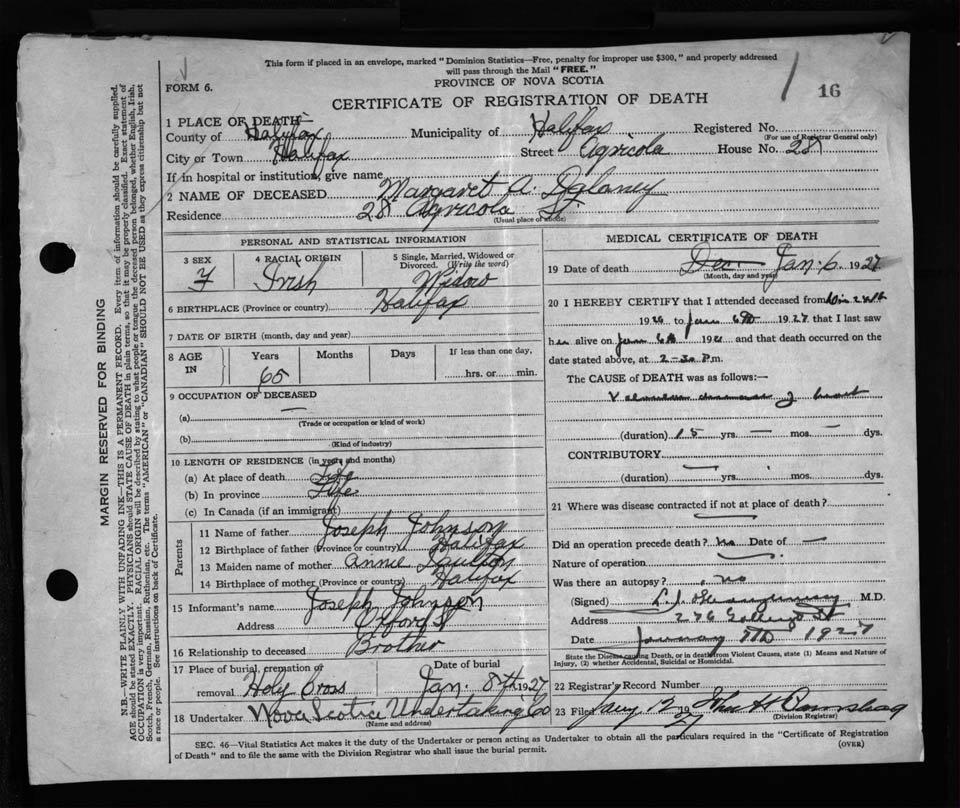 This form if placed in an envelope, marked "Dominion Statistics—Free, penalty for improper use $300," and properly addressed
will pass through the Mail "FREE."
FORM 6.
PROVINCE OF NOVA SCOTIA
CERTIFICATE OF REGISTRATION OF DEATH
16
1 PLACE OF DEATH
County of Halifax Municipality of Halifax Registered No.
(For use of Registrar General only)
City or Town Halifax Street Agricola House No. 28
If in hospital or institution, give name
2 NAME OF DECEASED Margaret A. Delaney
Residence 28 Agricola St.
(Usual place of abode)
PERSONAL AND STATISTICAL INFORMATION
3 SEX F
4 RACIAL ORIGIN Irish
5 Single, Married, Widowed or Divorced. (Write the word) Widow
6 BIRTHPLACE (Province or country) Halifax
7 DATE OF BIRTH (month, day and year)
8 AGE IN Years Months Days If less than one day,
65 hrs. or min.
9 OCCUPATION OF DECEASED
(a) —
(Trade or occupation or kind of work)
(b)
(Kind of industry)
10 LENGTH OF RESIDENCE (in years and months)
(a) At place of death Life
(b) In province Life
(c) In Canada (if an immigrant)
Parents
11 Name of father Joseph Johnson
12 Birthplace of father (Province or country) Halifax
13 Maiden name of mother Annie
14 Birthplace of mother (Province or country) Halifax
15 Informant's name Joseph Johnson
Address Oxford St
16 Relationship to deceased Brother
17 Place of burial, cremation or removal Holy Cross
Date of burial Jan. 8th 1927
18 Undertaker Nova Scotia Undertaking Co
(Name and address)
MEDICAL CERTIFICATE OF DEATH
19 Date of death Dec. Jan. 6. 1927
(Month, day and year)
20 I HEREBY CERTIFY that I attended deceased from
1926 to Jan 6th 1927 that I last saw
her alive on Jan 6th 192 and that death occurred on the
date stated above, at 2-30 P.m.
The CAUSE of DEATH was as follows:—
Valvular disease of heart
(duration) 15 yrs. — mos. — dys.
CONTRIBUTORY
(duration) yrs. mos. dys.
21 Where was disease contracted if not at place of death?
Did an operation precede death? no Date of —
Nature of operation
Was there an autopsy? no
(Signed) M.D.
Address St
Date January 7th 1927
State the Disease causing Death, or in death from Violent Causes, state (1) Means and Nature of
Injury, (2) whether Accidental, Suicidal or Homicidal.
22 Registrar's Record Number
23 Filed Jany 12 27
(Division Registrar)
SEC. 46—Vital Statistics Act makes it the duty of the Undertaker or person acting as Undertaker to obtain all the particulars required in the "Certificate of Registration
of Death" and to file the same with the Division Registrar who shall issue the burial permit.
(OVER)
MARGIN RESERVED FOR BINDING
N.B.—WRITE PLAINLY WITH UNFADING INK—THIS IS A PERMANENT RECORD. Every item of information should be carefully supplied.
AGE should be stated EXACTLY. PHYSICIANS should STATE CAUSE OF DEATH in plain terms, so that it may be properly classified. Exact statement of
OCCUPATION is very important. RACIAL ORIGIN will be described by stating to what people or tongue the deceased person belonged, whether English, Irish,
Scotch, French, German, Russian, Ruthenian, etc. The terms "AMERICAN" or "CANADIAN" SHOULD NOT BE USED as they express citizenship but not
a race or people. See instructions on back of Certificate.